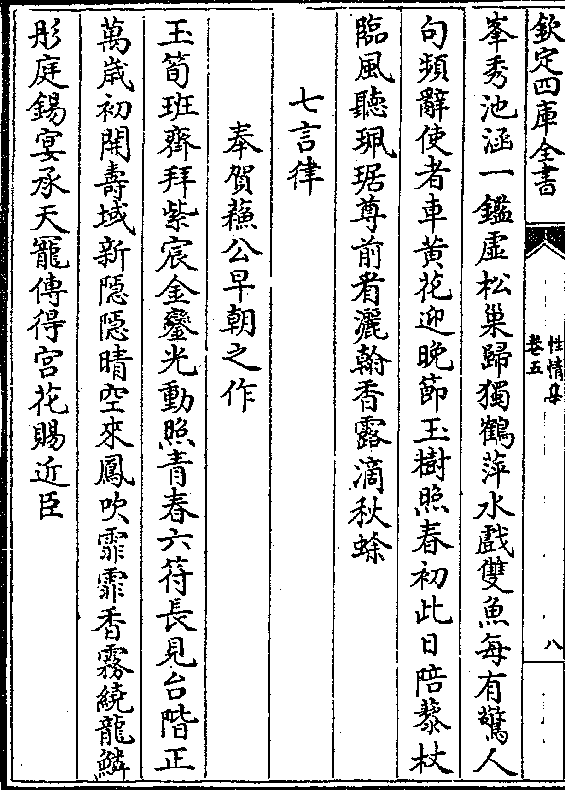 欽定四庫全書
性情集
卷五
八
峯秀池涵一鑑虛松巢歸獨鶴萍水戲雙魚每有驚人
句頻辭使者車黃花迎晚節玉樹照春初此日陪藜杖
臨風聽珮琚尊前看灑翰香露滴秋蜍
七言律
奉賀蘓公早朝之作
玉筍班齊拜紫宸金鑾光動照青春六符長見台階正
萬歲初開壽域新隠隠晴空來鳳吹霏霏香霧繞龍鱗
彤庭錫宴承天寵傳得宮花賜近臣